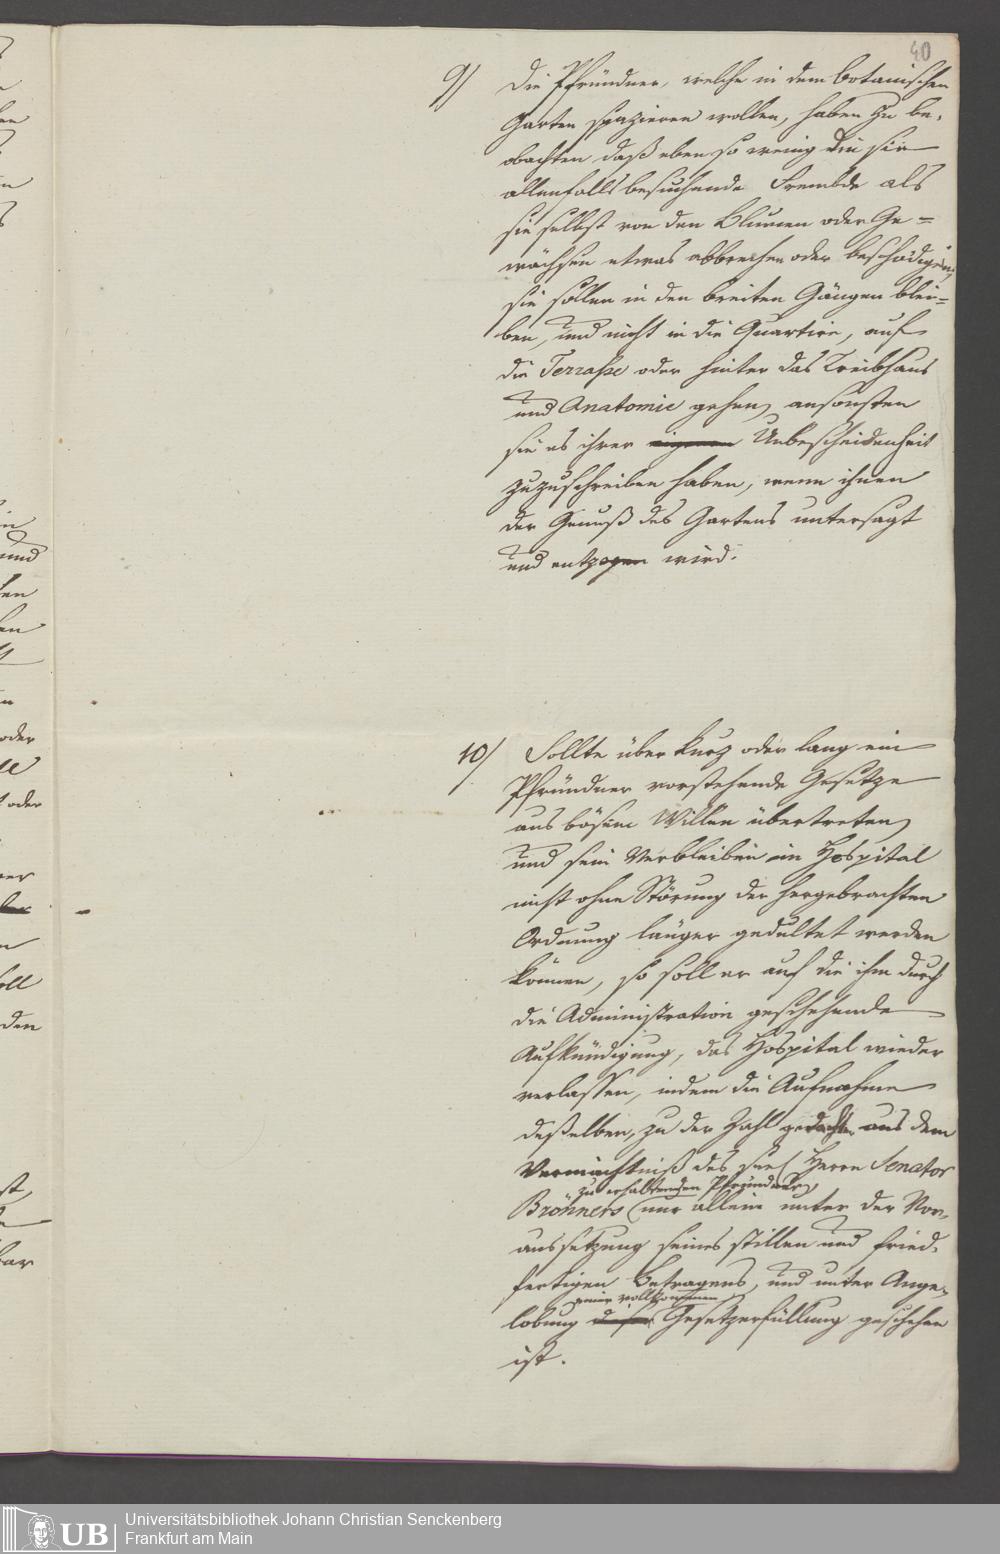 40
9) Die Pfründner, welche in dem botanischen
Garten spazieren wollen, haben zu be-
obachten daß eben so wenig die sie
allenfalls besuchende Frembde als
sie selbst von den Blumen oder Ge=
wächsen etwas abbrechen oder beschädigen,
sie sollen in den breiten Gängen blei=
ben, und nicht in die Quartire, auf
die Terrasse oder hinter das Treibhaus
und Anatomie gehen, ansonsten
sie es ihrer eigenen Unbescheidenheit
zuzuschreiben haben, wenn ihnen
der Genuß des Gartens untersagt
und entzogen wird.
10) Sollte über kurz oder lang ein
Pfründner vorstehende Gesetze
aus bösem Willen übertreten,
und sein Verbleiben im Hospital
nicht ohne Störung der hergebrachten
Ordnung länger gedultet werden
können, so soll er auf die ihm durch
die Administration geschehende
Aufkündigung, das Hospital wieder
verlassen, indem die Aufnahme
deßelben, zu der Zahl gedachter aus dem
Vermächtniß des seel. Herrn Senator
zu erhaltenden Pfründner,
Brönners nur allein unter der Vor-
aussetzung seines stillen und fried-
fertigen Betragens, und unter Ange-
einer vollkommenen
lobung dieser Gesetzerfüllung geschehen
ist.
und
oder
oder
den
UB
Universitätsbibliothek Johann Christian Senckenberg
Frankfurt am Main